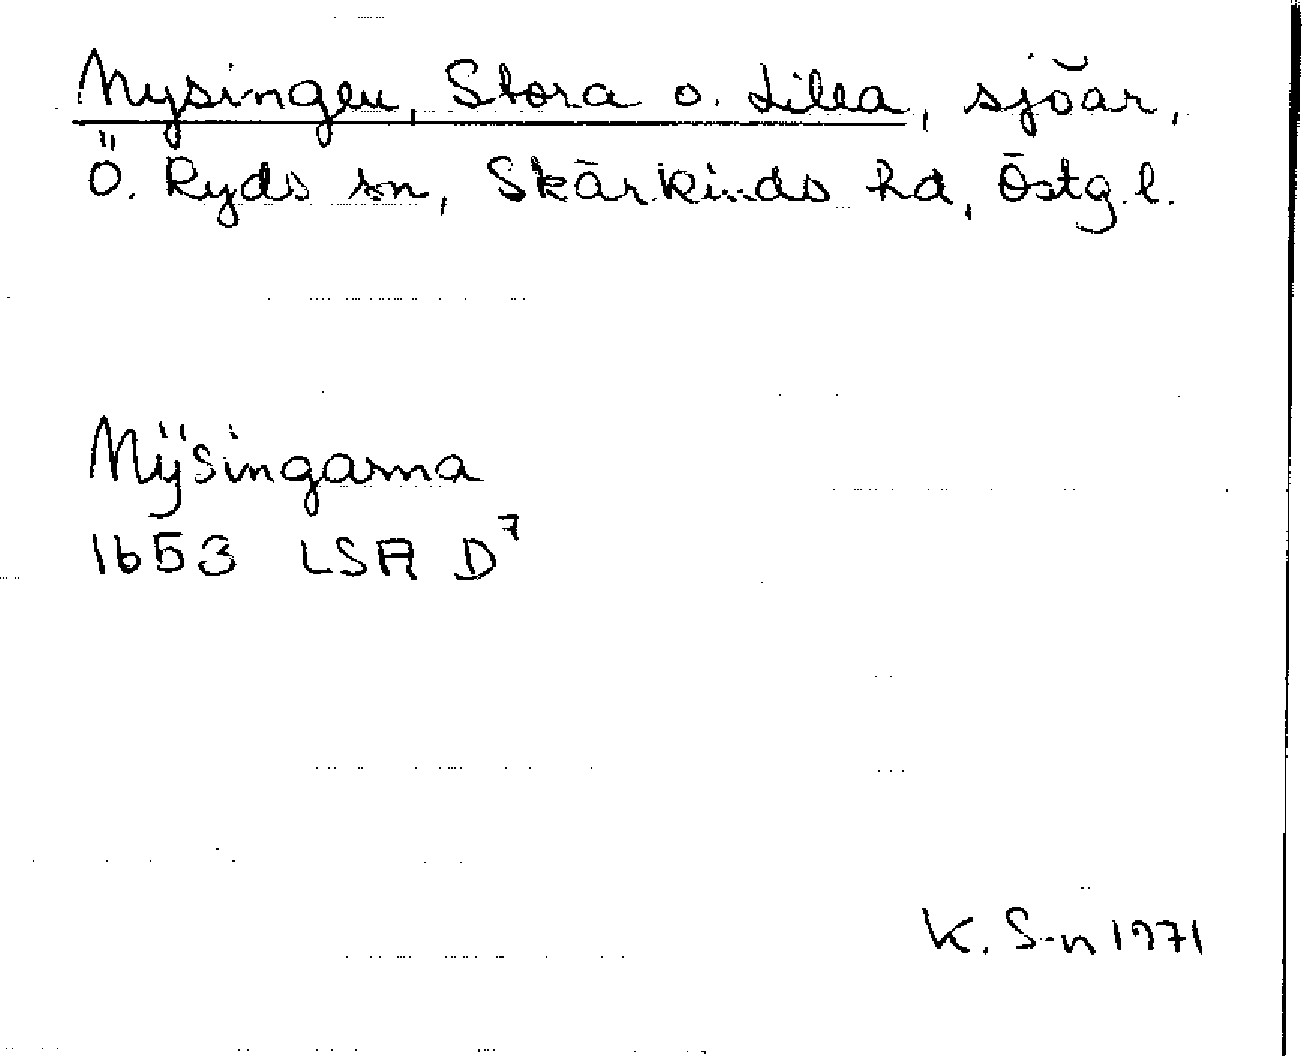 Mysingen, Stora o. Lilla, sjöar,
Ö. Ryds sn, Skärkinds hd, Östg.l.
Mÿsingarna
1653 LSA D⁷
K. S-n 1971